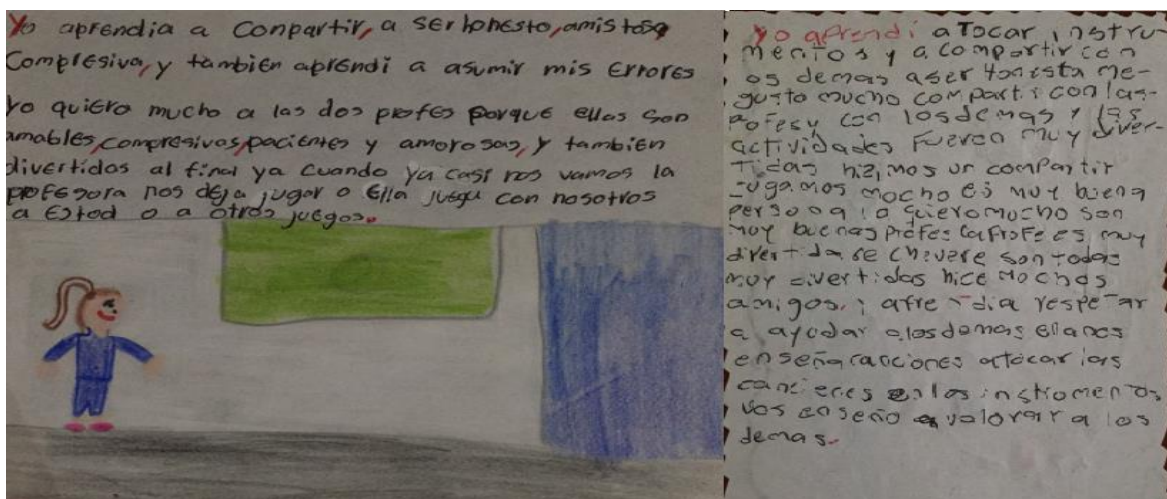 Yo aprendia a conpartir, a ser honesto, amistosa
Compresiva, y también aprendi a asumir mis Errores
Yo quiero mucho a las dos profes porque ellas son
amables, compresivas, pacientes y amorosas, y también
divertidas al final ya cuando ya casi nos vamos la
profesora nos deja jugar o Ella juega con nosotros
a Estod o a otros juegos.
Yo aprendi a Tocar instru-
mentos y a compartir con
os demas a ser Honista me-
gusto mucho comparti con las-
Pofes y con los demas y las
actividades Fueron muy diver-
Tidas hizimos un compartir
Jugamos mocho es muy buena
persona la quiero mucho son
muy buenas profes La Profe es muy
divertida se chevere son todas
muy divertidas hice mochos
amigos, aprendia respetar
a ayudar a los demas Ella nos
enseña canciones a tocar las
canciones en los instromentos
Nos enseño a valorar a los
demas.